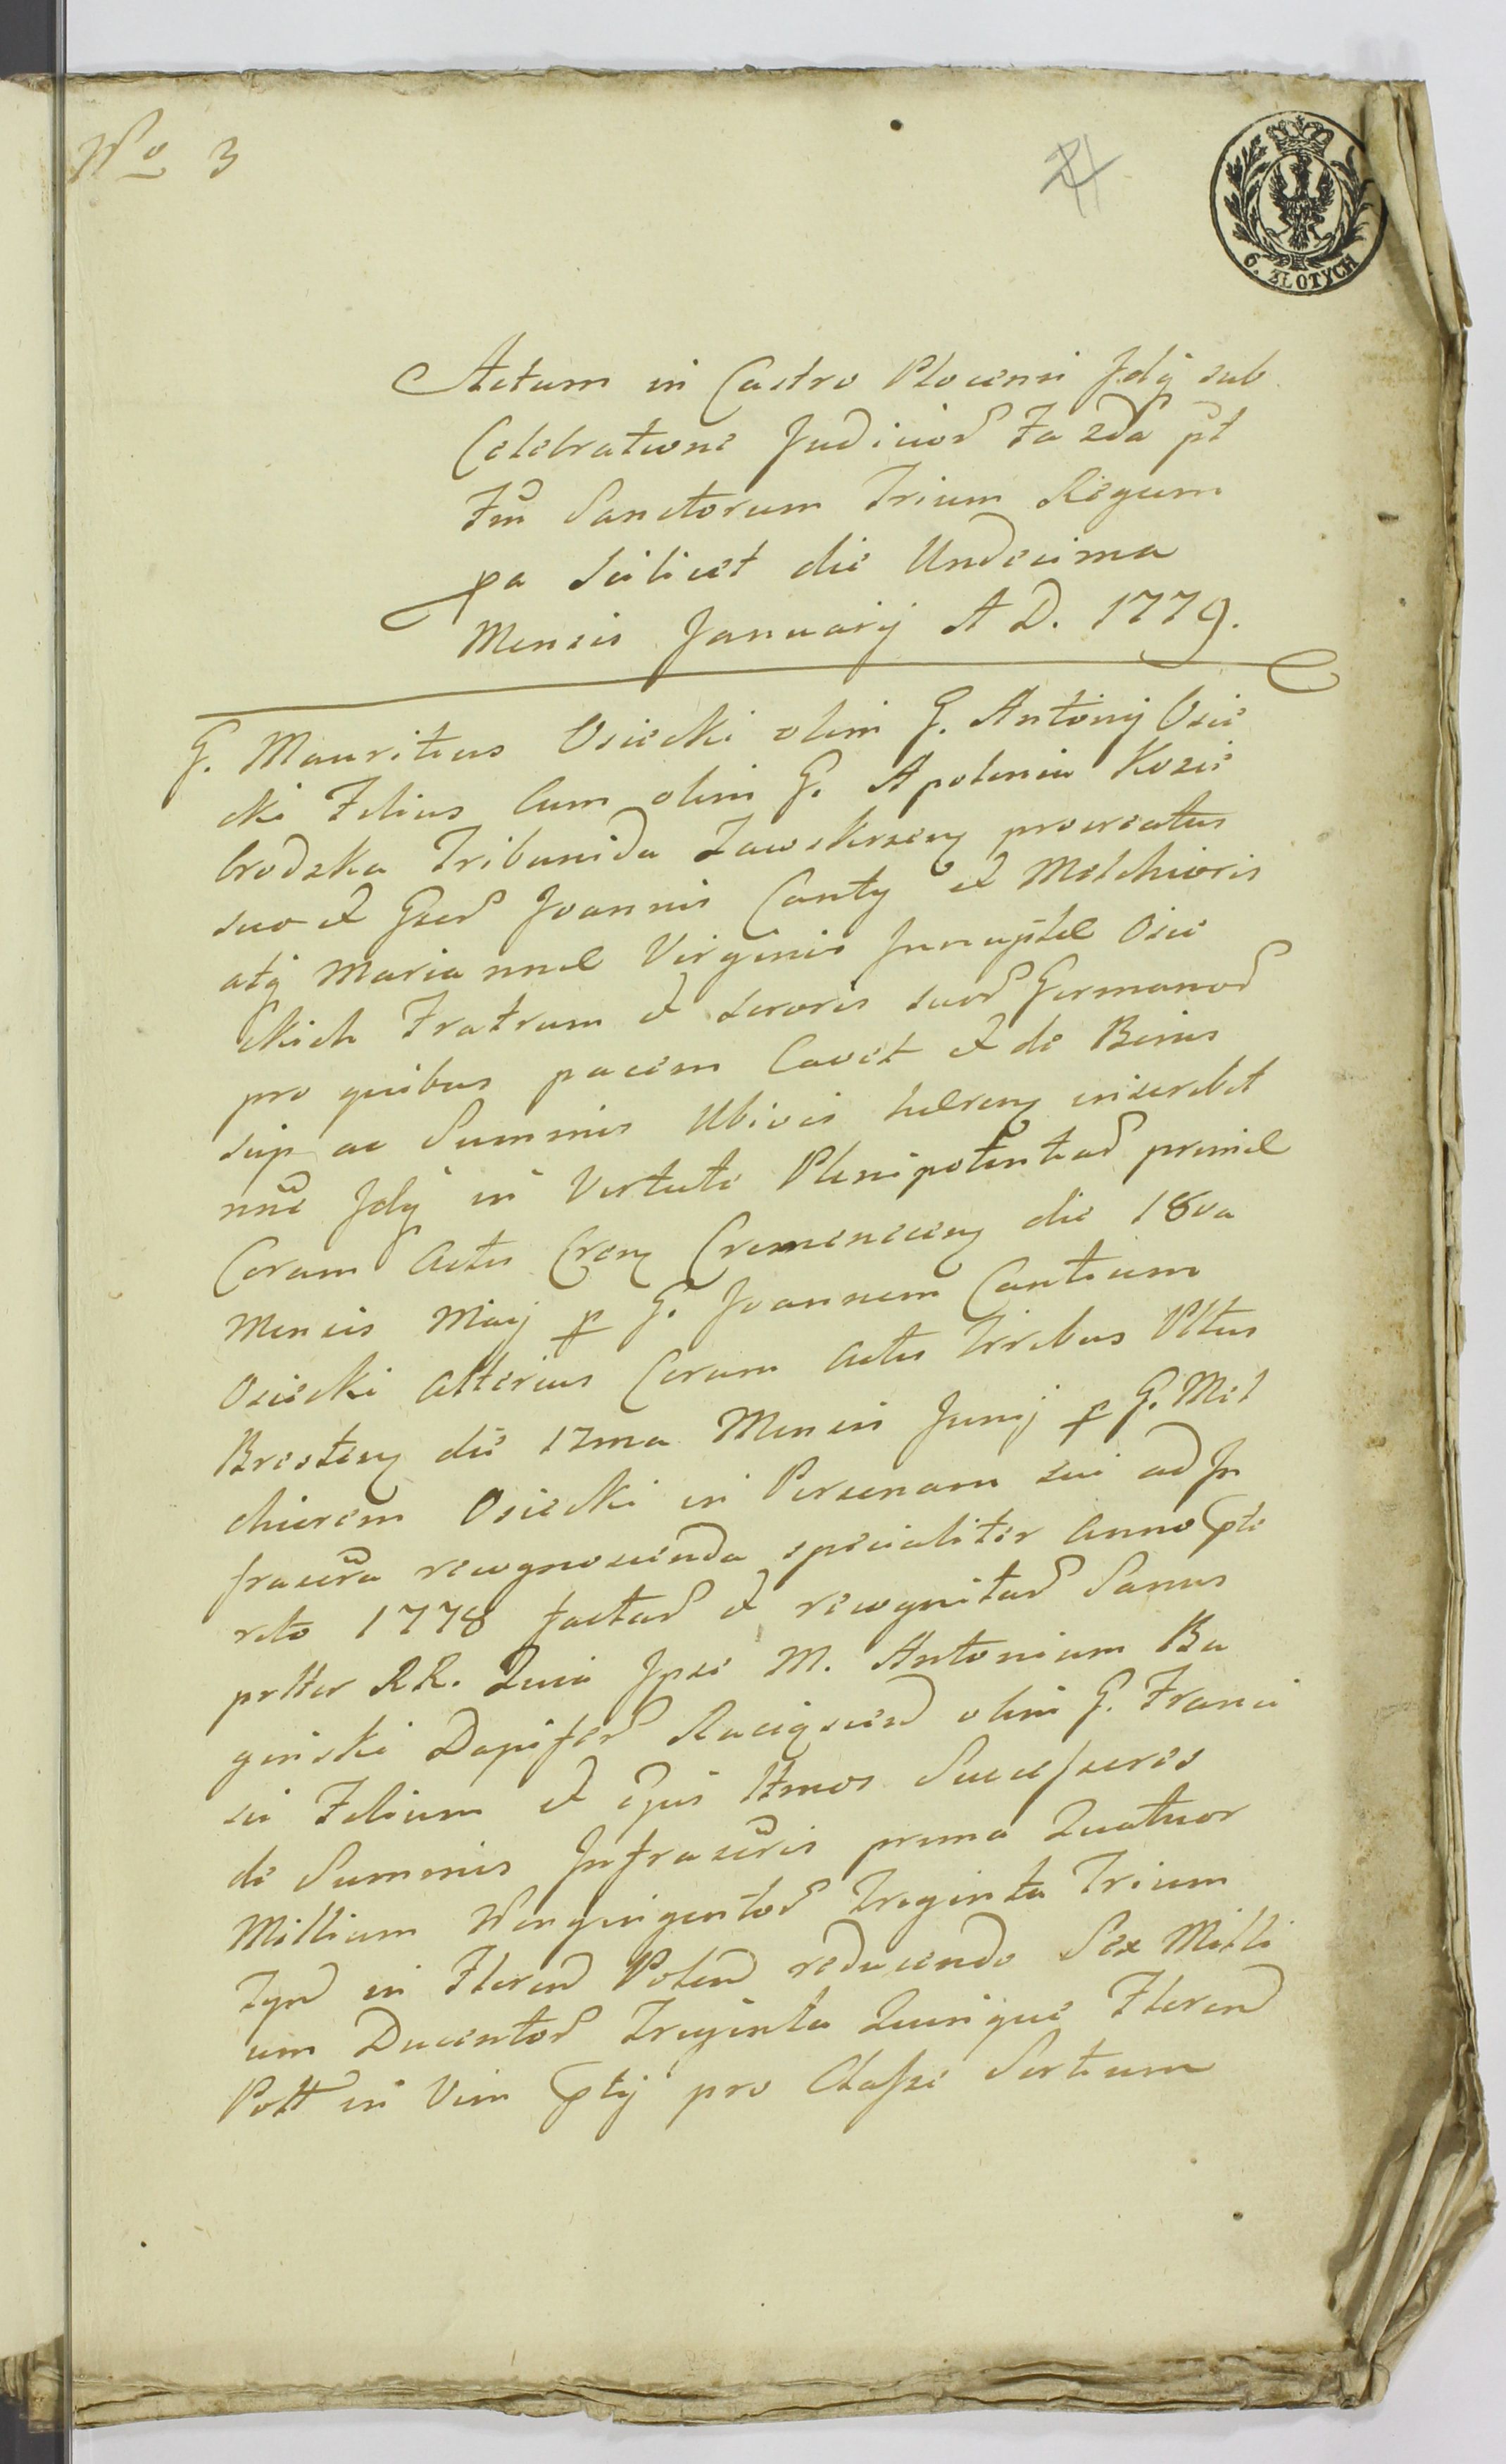 No 3
24
6. ZŁOTYCH
Actum in Castro Plocensi fdÿ sub
Celebratione Judicior Fa 2da pt
Fm Sanctorum Trium Regum
pa Scilicet die Undecima
Mensis Januarÿ A D. 1779.
G. Mauritius Osiecki olim G. Antonÿ Osie
cki Filius Cum olim G. Apolonia Kozie
brodzka Tribunida Zawskrzeng procreatus
suo et Gser Joannis Canty et Melchioris
atq Mariannæ Virginis Innuptæ Osie
ckich Fratrum et Sororis suor Germanor
pro quibus pacem Cavet et de Bonis
suip ac Summis Ubivis hæreng inscribit
nne fdÿ in Virtute Plenipotentiar primæ
Coram Actis Creng Cremeneceng die 18va
Mensis Maij p G. Joannem Cantium
Osiecki alterius Coram Actis Tribus Pltus
Bresteng die 17ma Mensis Junij p G. Mel
chiorem Osiecki in Personam sui ad In
frascra recognoscenda specialiter Anno pte
rito 1778 factar et recognitar Sanus
prtter RR. Quia Ipse M. Antonium Ba
giński Dapifer Raciąscen olim G. Franci
sci Filium et ejus ltmos Successores
de Summis Infrascris prima Quatuor
Millium Nongingentor Triginta Trium
Tyn in Floren Polon reducendo Sex Milli
um Ducentor Triginta Quinque Floren
Poll in Vim ptÿ pro Classe Sortium